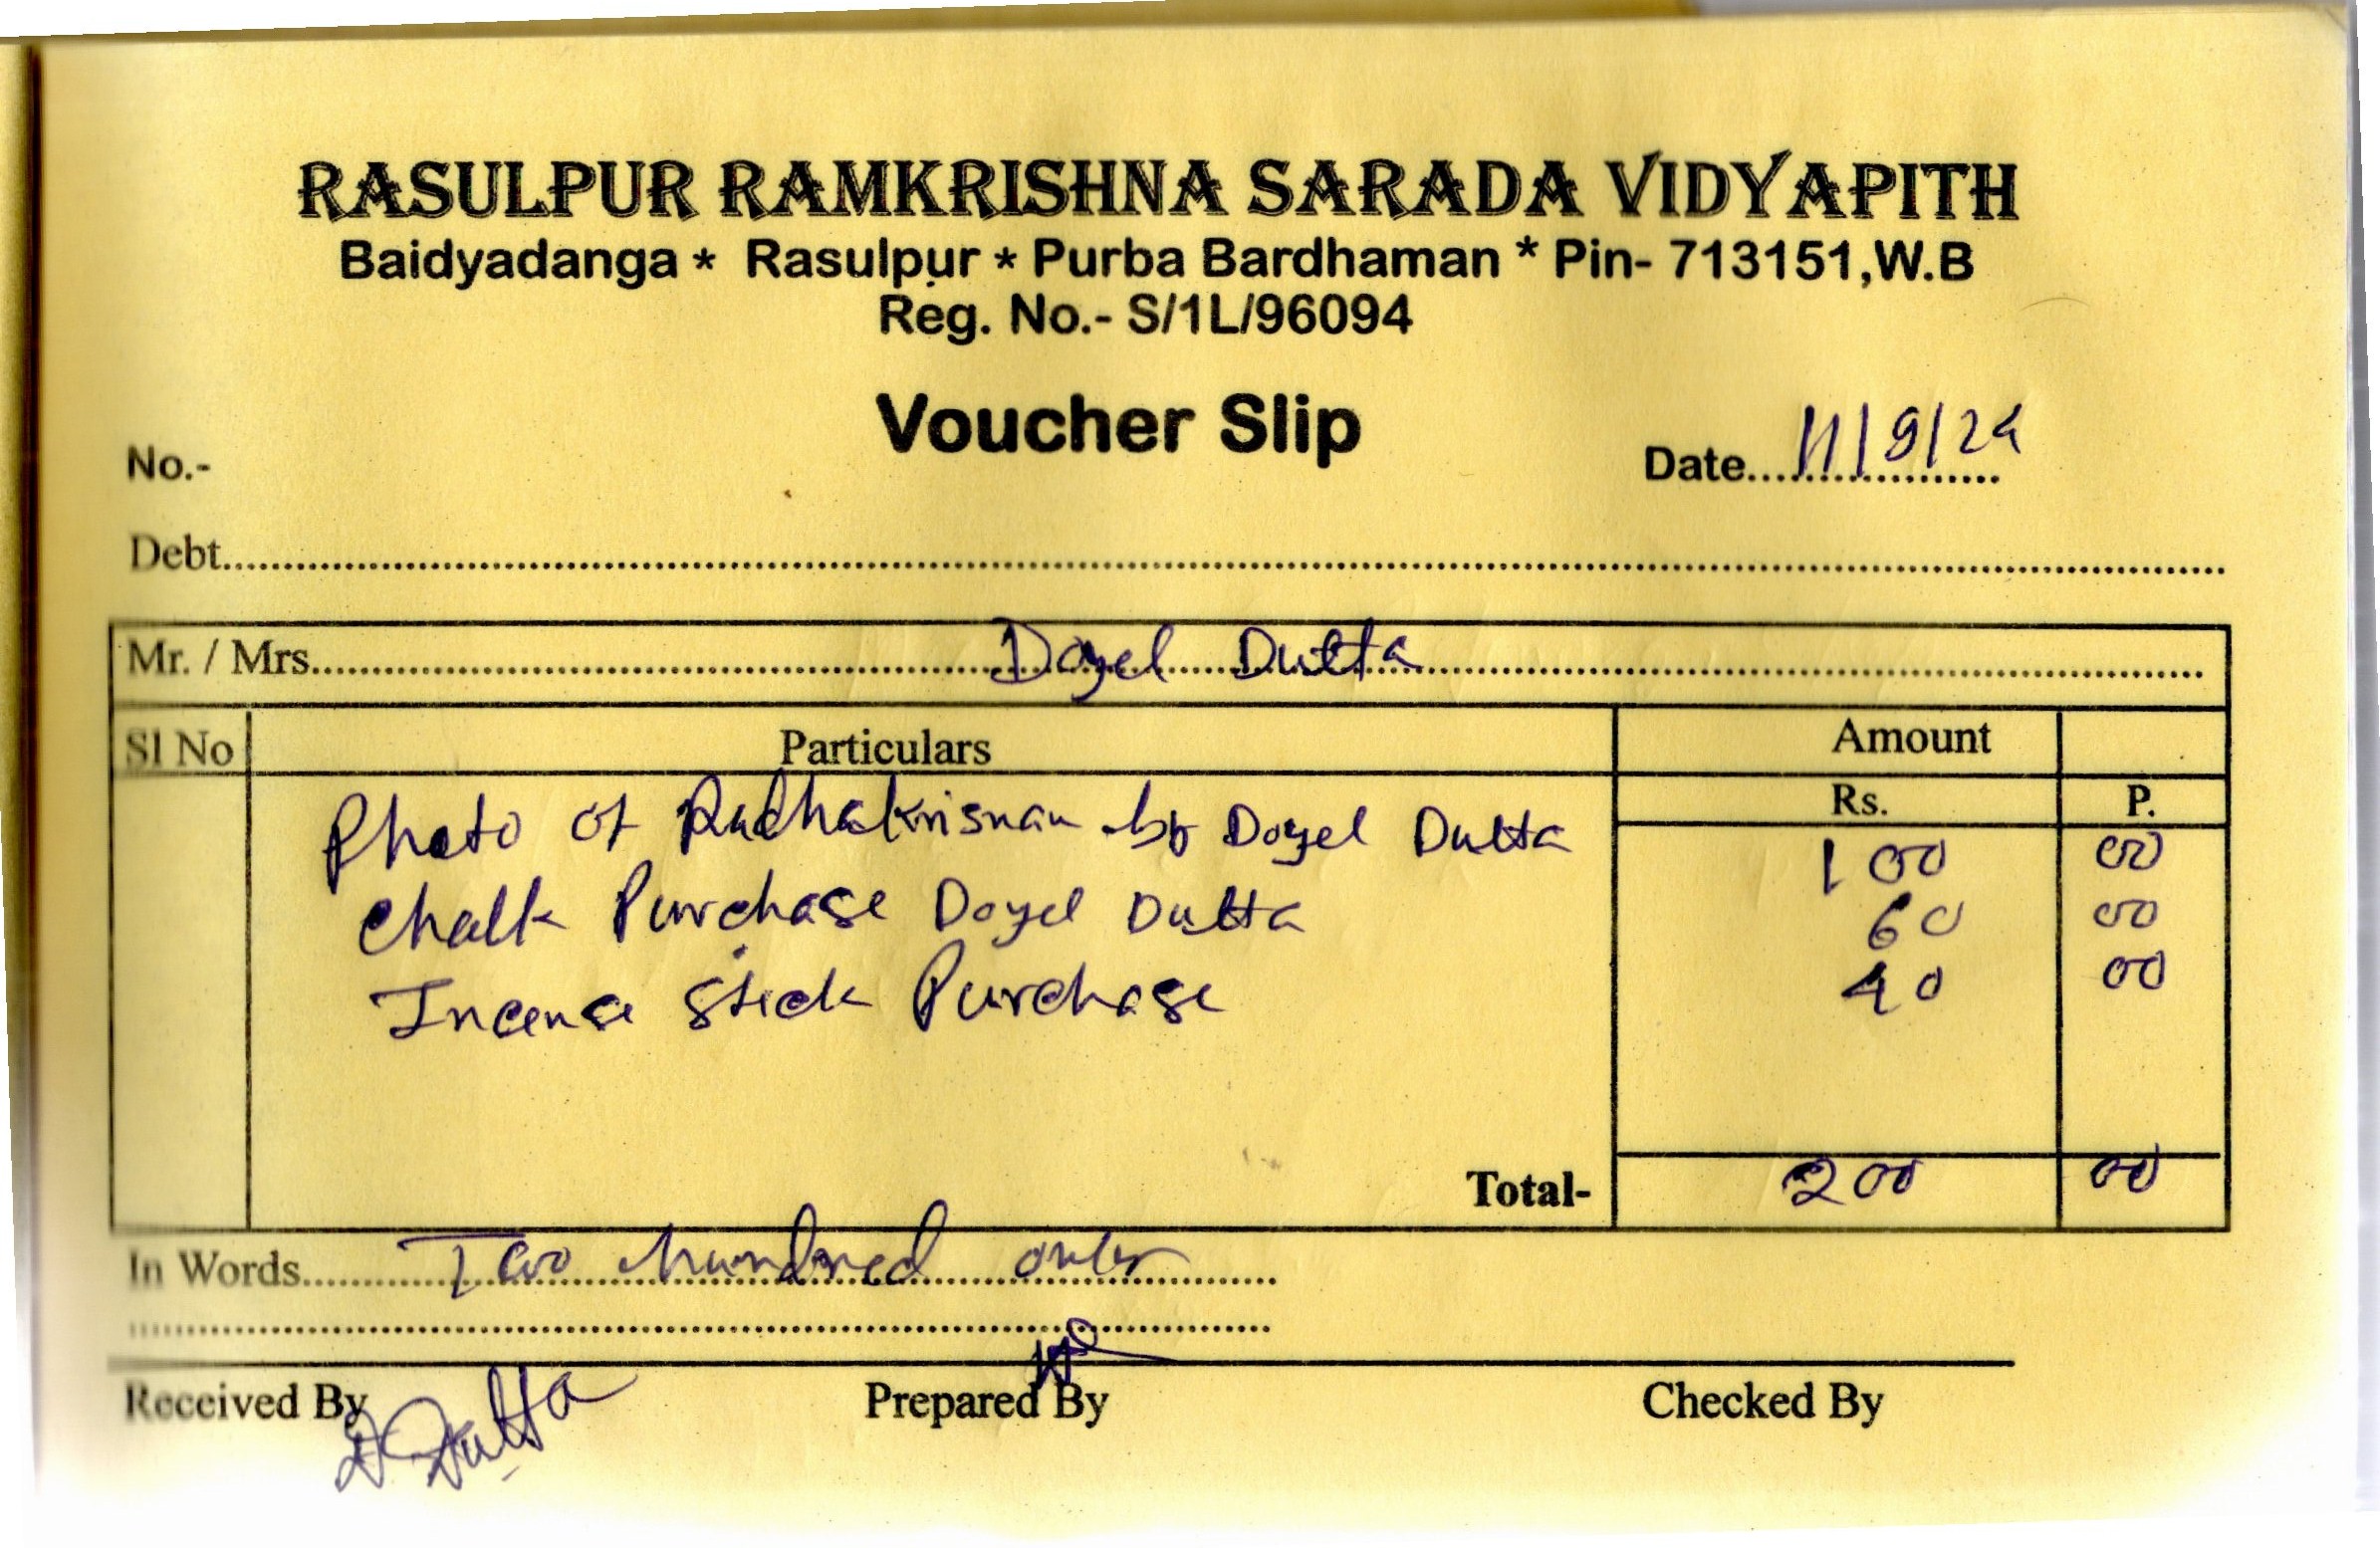 RASULPUR RAMKRISHNA SARADA VIDYAPITH
Baidyadanga * Rasulpur * Purba Bardhaman * Pin- 713151,W.B
Reg. No.- S/1L/96094
Voucher Slip
No.-
Date....11/9/24
Debt
Mr. / Mrs. Doyel Dutta
Sl No Particulars Amount
Rs. P.
Photo of Radhakrisnan by Doyel Dutta 100 00
Chalk Purchase Doyel Dutta 60 00
Incense Stick Purchase 40 00
Total- 200 00
In Words Two hundred only
Received By Prepared By Checked By
D Dutta